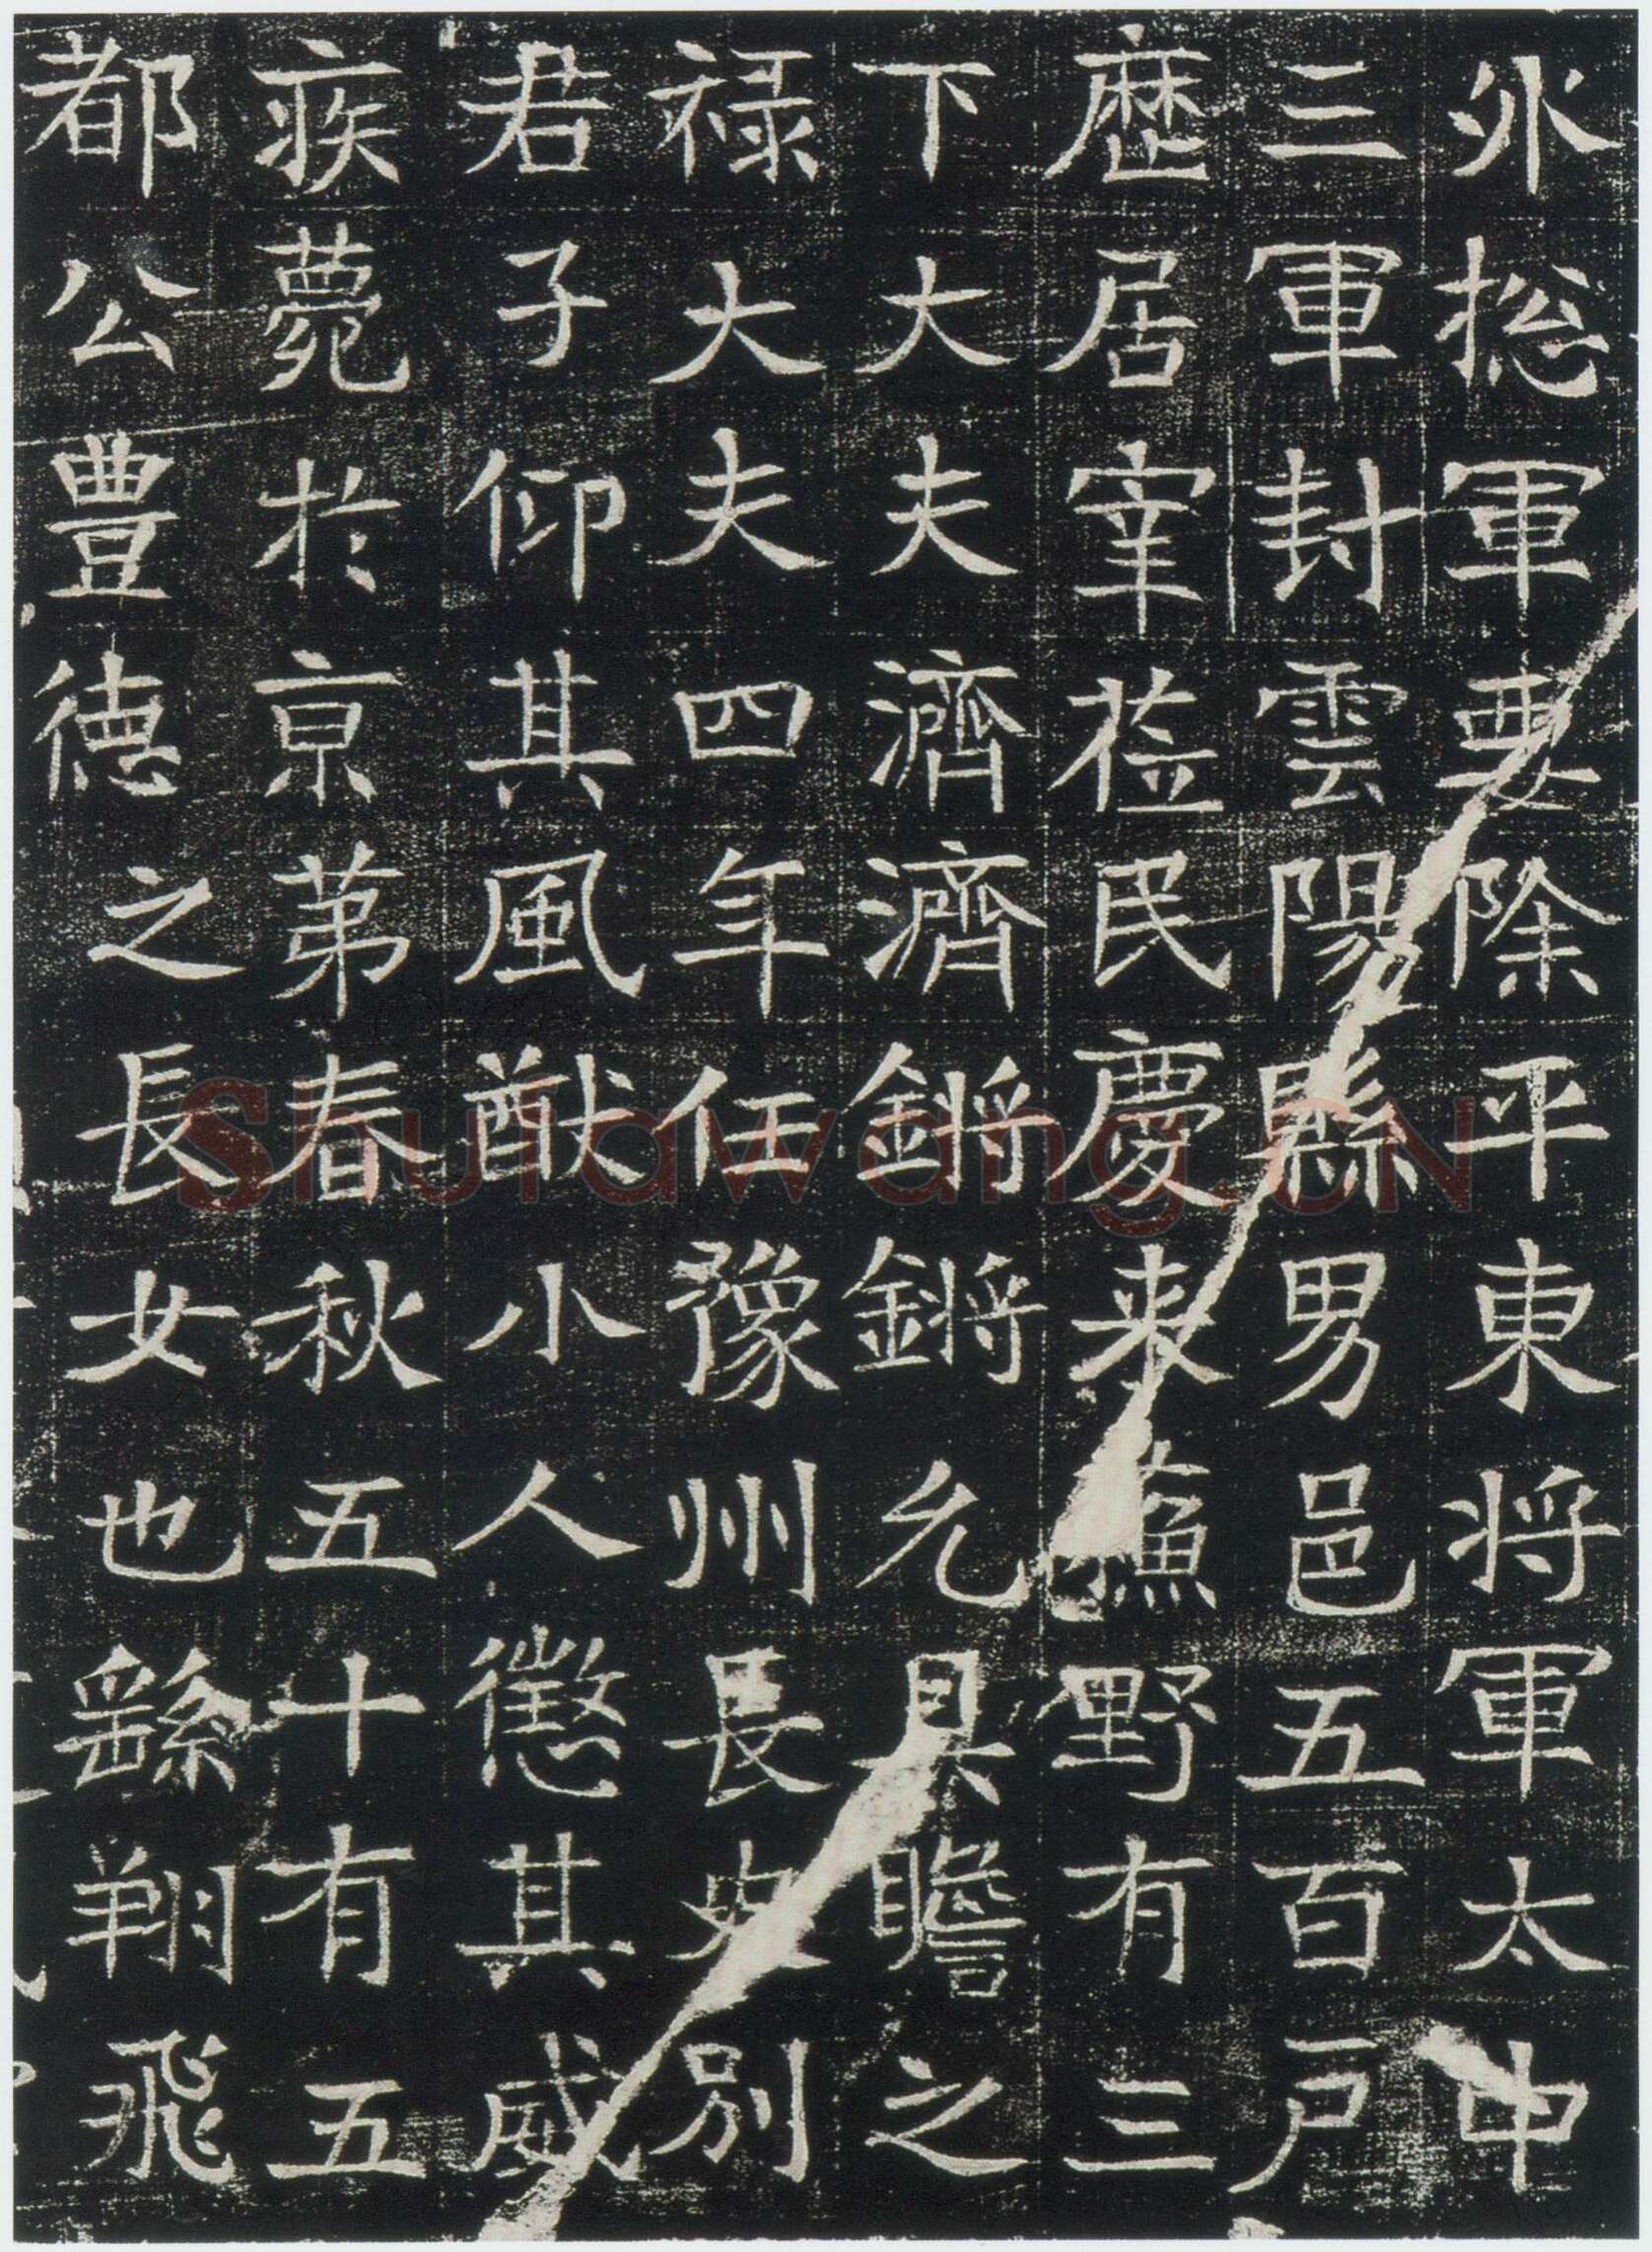 氺捴軍要除平東將軍太中
三軍封雲陽縣男邑五百戶
歷居宰莅民慶来蕉野有三
下大夫濟濟鏘鏘允具瞻之
禄大夫四年任豫州長史別
君子仰其風猷小人懲其威
疾薨於京第春秋五十有五
都公豊德之長女也繇翔飛
Shufawang.CN